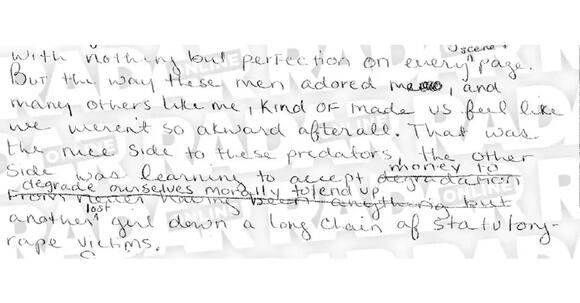 with nothing but perfection on every scene + page.
But the way these men adored me, and
many others like me, kind of made us feel like
we weren't so akward afterall. That was
the nice side to these predators, the other
side was learning to accept degradation money to
degrade ourselves morally to end up
from never having been anything but
another lost girl down a long chain of statutory-
rape victims.
RADAR ONLINE